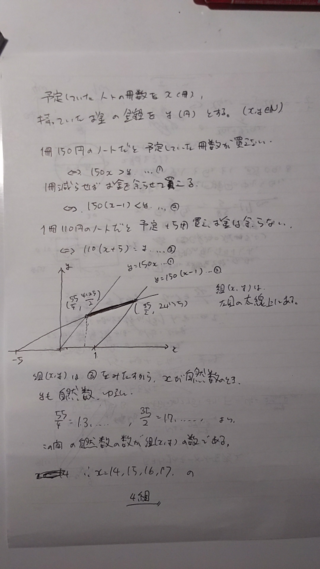 予定していたノートの冊数を x (冊),
持っていたお金の金額を y (円) とする。(x,y∈N)
1冊150円のノートだと予定していた冊数が買えない.
⇔ 150x > y … ①
1冊減らせばお金を余らせて買える
⇔ 150(x-1) < y … ②
1冊110円のノートだと 予定 +5冊買え お金は余らない..
⇔ 110(x+5) = y … ③
y
y=150x …①
y=150(x-1) …②
組(x,y)は
左図の太線上にある。
-5
1
x
組(x,y)は ③ をみたすから, xが自然数のとき,
yも自然数.
55/4 = 13, …… , 35/2 = 17, …… より
この間の自然数の数が組(x,y)の数である。
∴ x=14,15,16,17 の
4組